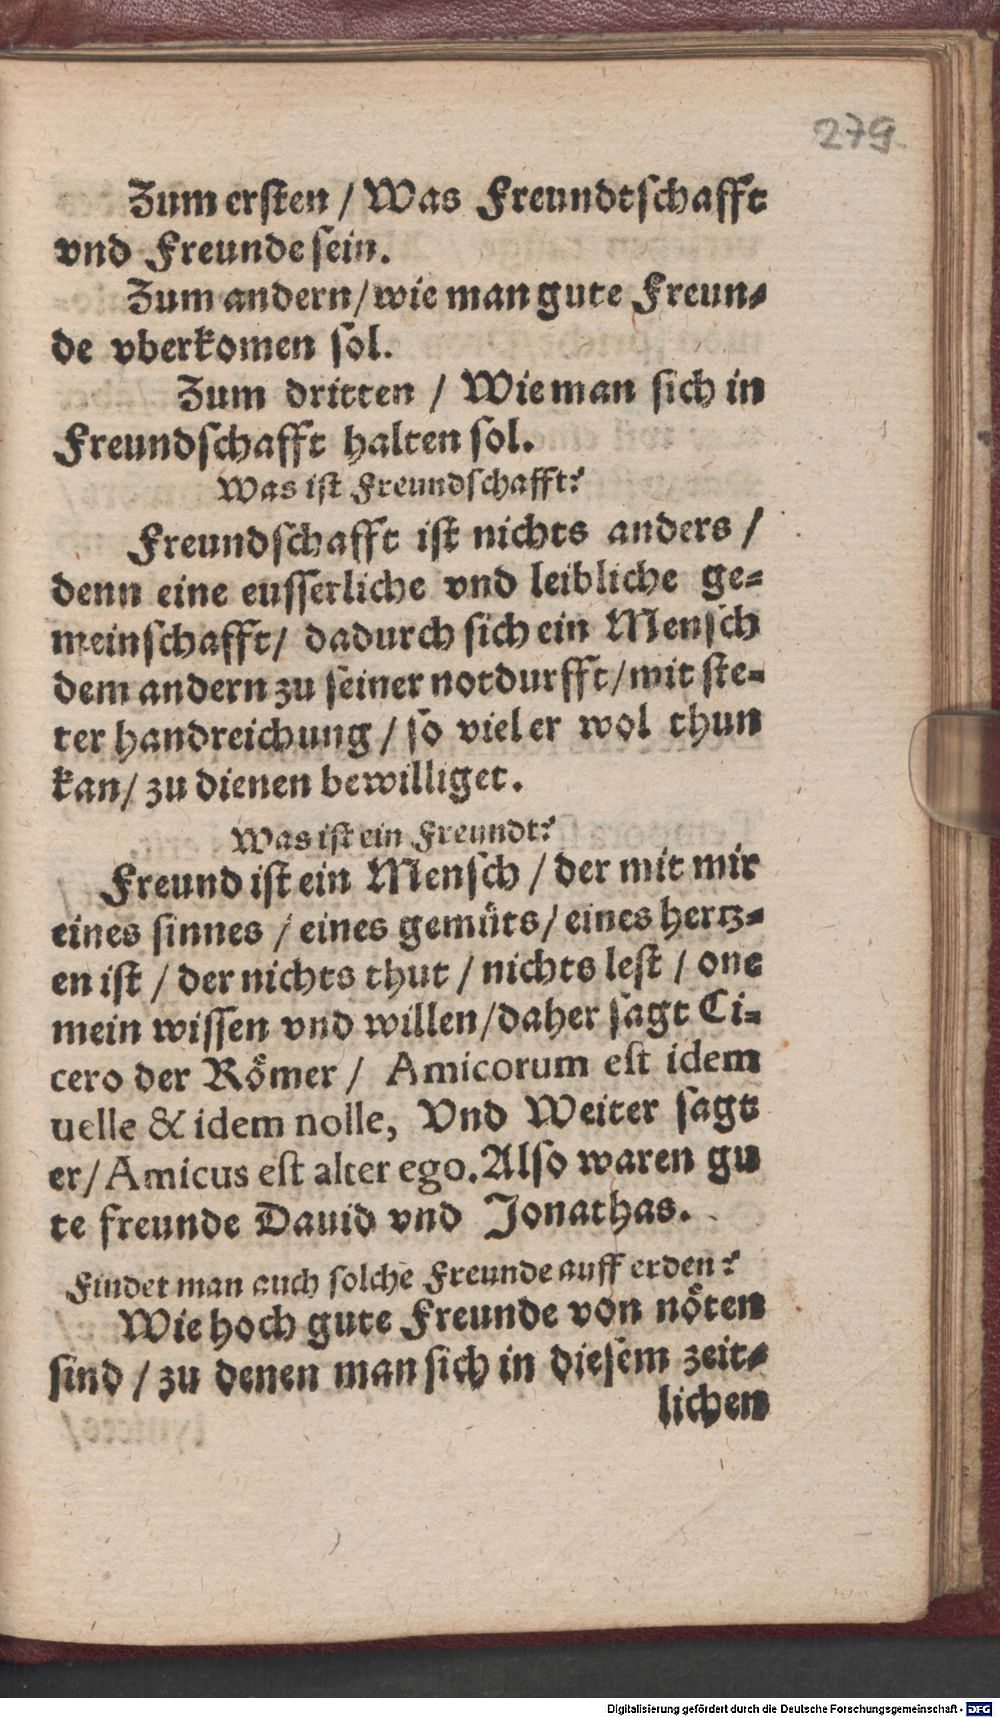 279
Zum ersten / Was Freundtschafft
vnd Freunde sein.
Zum andern / wie man gute Freun-
de vberkomen sol.
Zum dritten / Wie man sich in
Freundschafft halten sol.
Was ist Freundschafft?
Freundschafft ist nichts anders /
denn eine eusserliche vnd leibliche ge-
meinschafft / dadurch sich ein Mensch
dem andern zu seiner notdurfft / mit ste-
ter handreichung / so viel er wol thun
kan / zu dienen bewilliget.
Was ist ein Freundt?
Freund ist ein Mensch / der mit mir
eines sinnes / eines gemüts / eines hertz-
en ist / der nichts thut / nichts lest / one
mein wissen vnd willen / daher sagt Ci-
cero der Römer / Amicorum est idem
uelle & idem nolle, Vnd Weiter sagt
er / Amicus est alter ego. Also waren gu
te freunde Dauid vnd Jonathas.
Findet man auch solche Freunde auff erden?
Wie hoch gute Freunde von nöten
sind / zu denen man sich in diesem zeit-
lichen
Digitalisierung gefördert durch die Deutsche Forschungsgemeinschaft - DFG